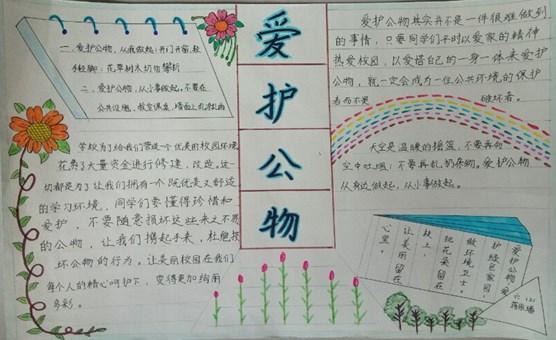 爱
护
公
物
一、爱护公物,从我做起:开门开窗,轻
手轻脚;花草树木切勿攀折
二、爱护公物,从小事做起,不要在
公共设施、教室课桌、墙面上乱涂乱画
学校为了给我们营造一个优美的校园环境
花费了大量资金进行修建、改造。这一
切都是为了让我们拥有一个既优美又舒适
的学习环境。同学们要懂得珍惜和
爱护,不要随意损坏这些来之不易
的公物,让我们携起手来,杜绝损
坏公物的行为。让美丽校园在我们
每个人的精心呵护下,变得更加绚丽
多彩。
爱护公物其实并不是一件很难做到
的事情,只要同学们平时以爱家的精神
热爱校园,以爱惜自己的一身一体来爱护
公物,就一定会成为一位公共环境的保护
者而不是破坏者。
天空是温暖的摇篮,不要再向
空中吐烟;不要再乱扔杂物。爱护公物
从身边做起,从小事做起。
爱护公物爱
护绿色家园,
做环境卫士。
把花朵留在
枝上,
让美丽留在
心里。